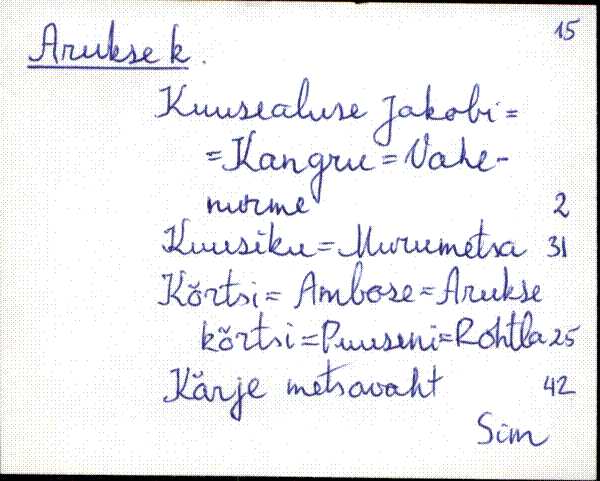 15
Arukse k.
Kuusealuse Jakobi =
= Kangru = Vahe-
nurme 2
Kuusiku = Murumetsa 31
Kõrtsi = Ambose = Arukse
kõrtsi = Puuseni = Rohtla 25
Kärje metsavaht 42
Sim